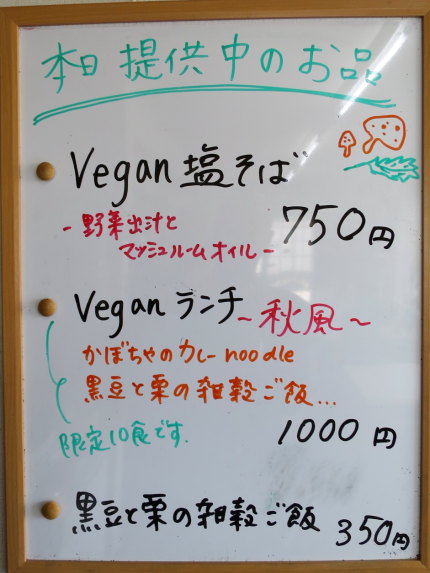 本日提供中のお品
Vegan 塩そば
-野菜出汁と
マッシュルームオイル-
750円
Vegan ランチ
~秋風~
かぼちゃのカレー noodle
黒豆と栗の雑穀ご飯...
限定10食です.
1000円
黒豆と栗の雑穀ご飯
350円